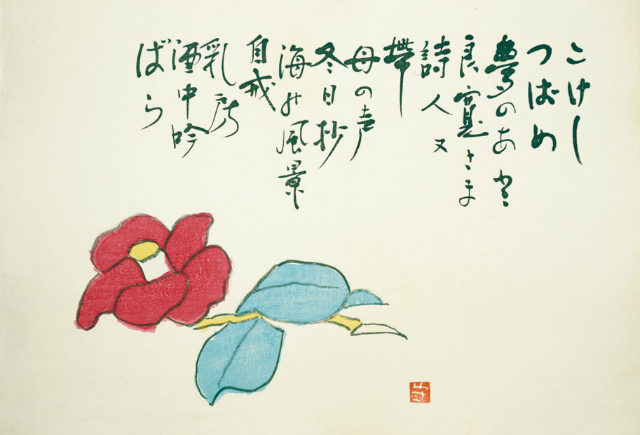 こけし
つばめ
夢のあと
良寛さま
詩人又
帯
母の声
冬日抄
海の風景
自戒
乳房
酒中吟
ばら